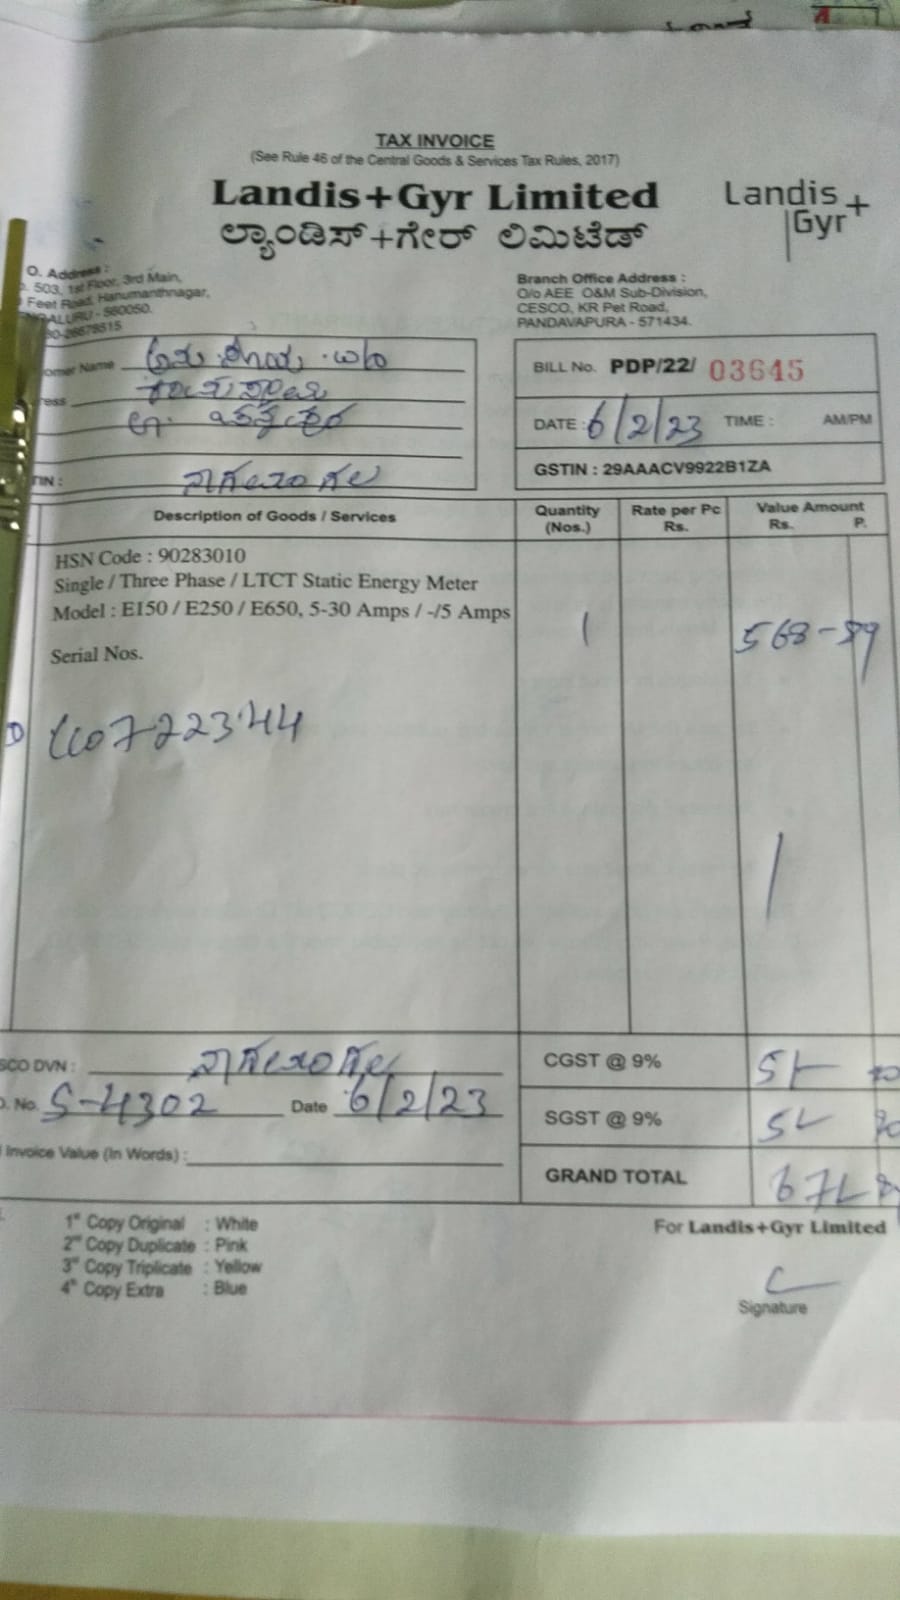 TAX INVOICE
(See Rule 46 of the Central Goods & Services Tax Rules, 2017)
Landis+Gyr Limited
ಲ್ಯಾಂಡಿಸ್+ಗೇರ್ ಲಿಮಿಟೆಡ್
Landis
Gyr+
O. Address :
503, 1st Floor, 3rd Main,
Feet Road, Hanumanthnagar,
560050.
Branch Office Address :
O/o AEE O&M Sub-Division,
CESCO, KR Pet Road,
PANDAVAPURA - 571434.
Name
BILL No. PDP/22/ 03645
DATE : 6/2/23 TIME : AM/PM
GSTIN : 29AAACV9922B1ZA
Description of Goods / Services
Quantity (Nos.)
Rate per Pc Rs.
Value Amount Rs. P.
HSN Code : 90283010
Single / Three Phase / LTCT Static Energy Meter
Model : E150 / E250 / E650, 5-30 Amps / -/5 Amps
1
568-89
Serial Nos.
DVN :
No. S-4302 Date 6/2/23
Invoice Value (In Words) :
CGST @ 9%
SGST @ 9%
GRAND TOTAL
1st Copy Original : White
2nd Copy Duplicate : Pink
3rd Copy Triplicate : Yellow
4th Copy Extra : Blue
For Landis+Gyr Limited
Signature